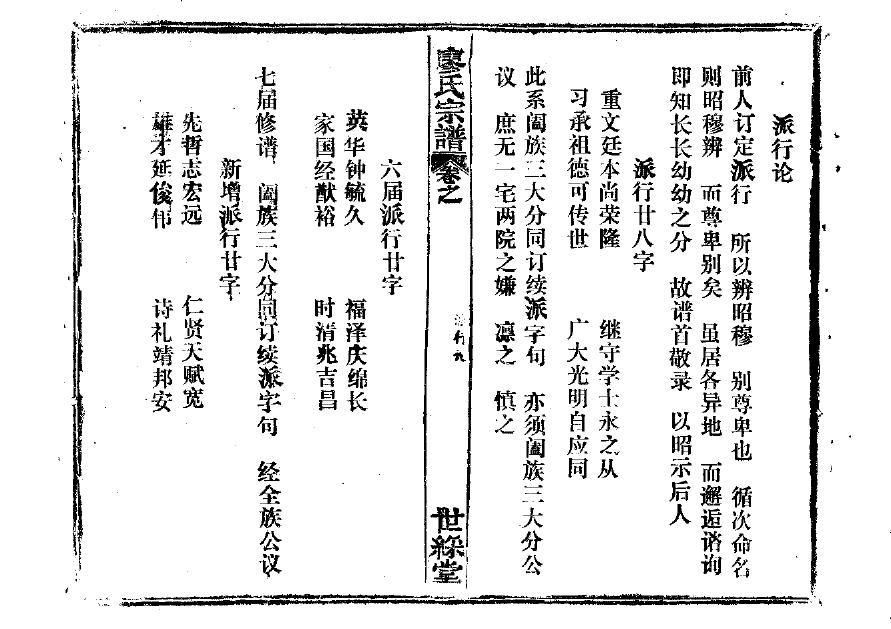 派行论
前人订定派行 所以辨昭穆 别尊卑也 循次命名
则昭穆辨 而尊卑别矣 虽居各异地 而邂逅谘询
即知长长幼幼之分 故谱首敬录 以昭示后人
派行廿八字
重文廷本尚荣隆 继守学士永之从
习承祖德可传世 广大光明自应同
此系阖族三大分同订续派字句 亦须阖族三大分公
议 庶无一宅两院之嫌 凛之 慎之
廖氏宗谱 卷之
派行论
世綵堂
六届派行廿字
英华钟毓久 福泽庆绵长
家国经猷裕 时清兆吉昌
七届修谱 阖族三大分同订续派字句 经全族公议
新增派行廿字
先哲志宏远 仁贤天赋宽
雄才延俊伟 诗礼靖邦安